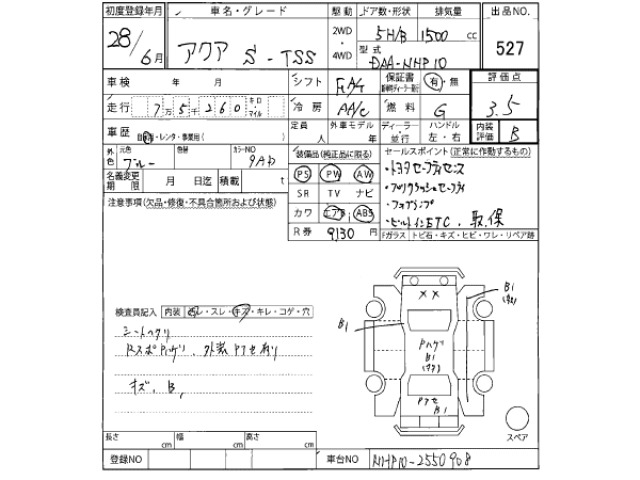 初度登録年月 車名・グレード 駆動 ドア数・形状 排気量 出品NO.
28/6月 アクア S-TSS 2WD・4WD 5H/B 1500cc 527
型式 DAA-NHP10
車検 年 月 シフト FA/T 保証書 有・無 評価点
走行 7万5千260 キロ マイル 冷房 AA/C 燃料 G 3.5
車歴 自家・レンタ・事業用( ) 定員 人 外車モデル 年 ディーラー・並行 ハンドル 左・右 内装評価 B
外色 元色 ブルー 色替 カラーNO 9AD 装備品(純正品に限る) セールスポイント(正常に作動するもの)
名義変更期限 月 日迄 積載 t PS PW AW ・トヨタセーフティセンス
注意事項(欠品・修復・不具合箇所および状態) SR TV ナビ ・プリクラッシュセーフティ
カワ エアB ABS ・フォグランプ
R券 9130円 ・ビルトインETC.取.保
Fガラス トビ石・キズ・ヒビ・ワレ・リペア跡
検査員記入 内装 ヨレ・スレ・キズ・キレ・コゲ・穴
B1
B1
シートヘタリ
RスポPハゲリ.外装Pアセ有り
Pハゲリ
B1
キズ.B1
Pアセ
B1
スペア
長さ cm 幅 cm 高さ cm
登録NO 車台NO NHP10-2550908